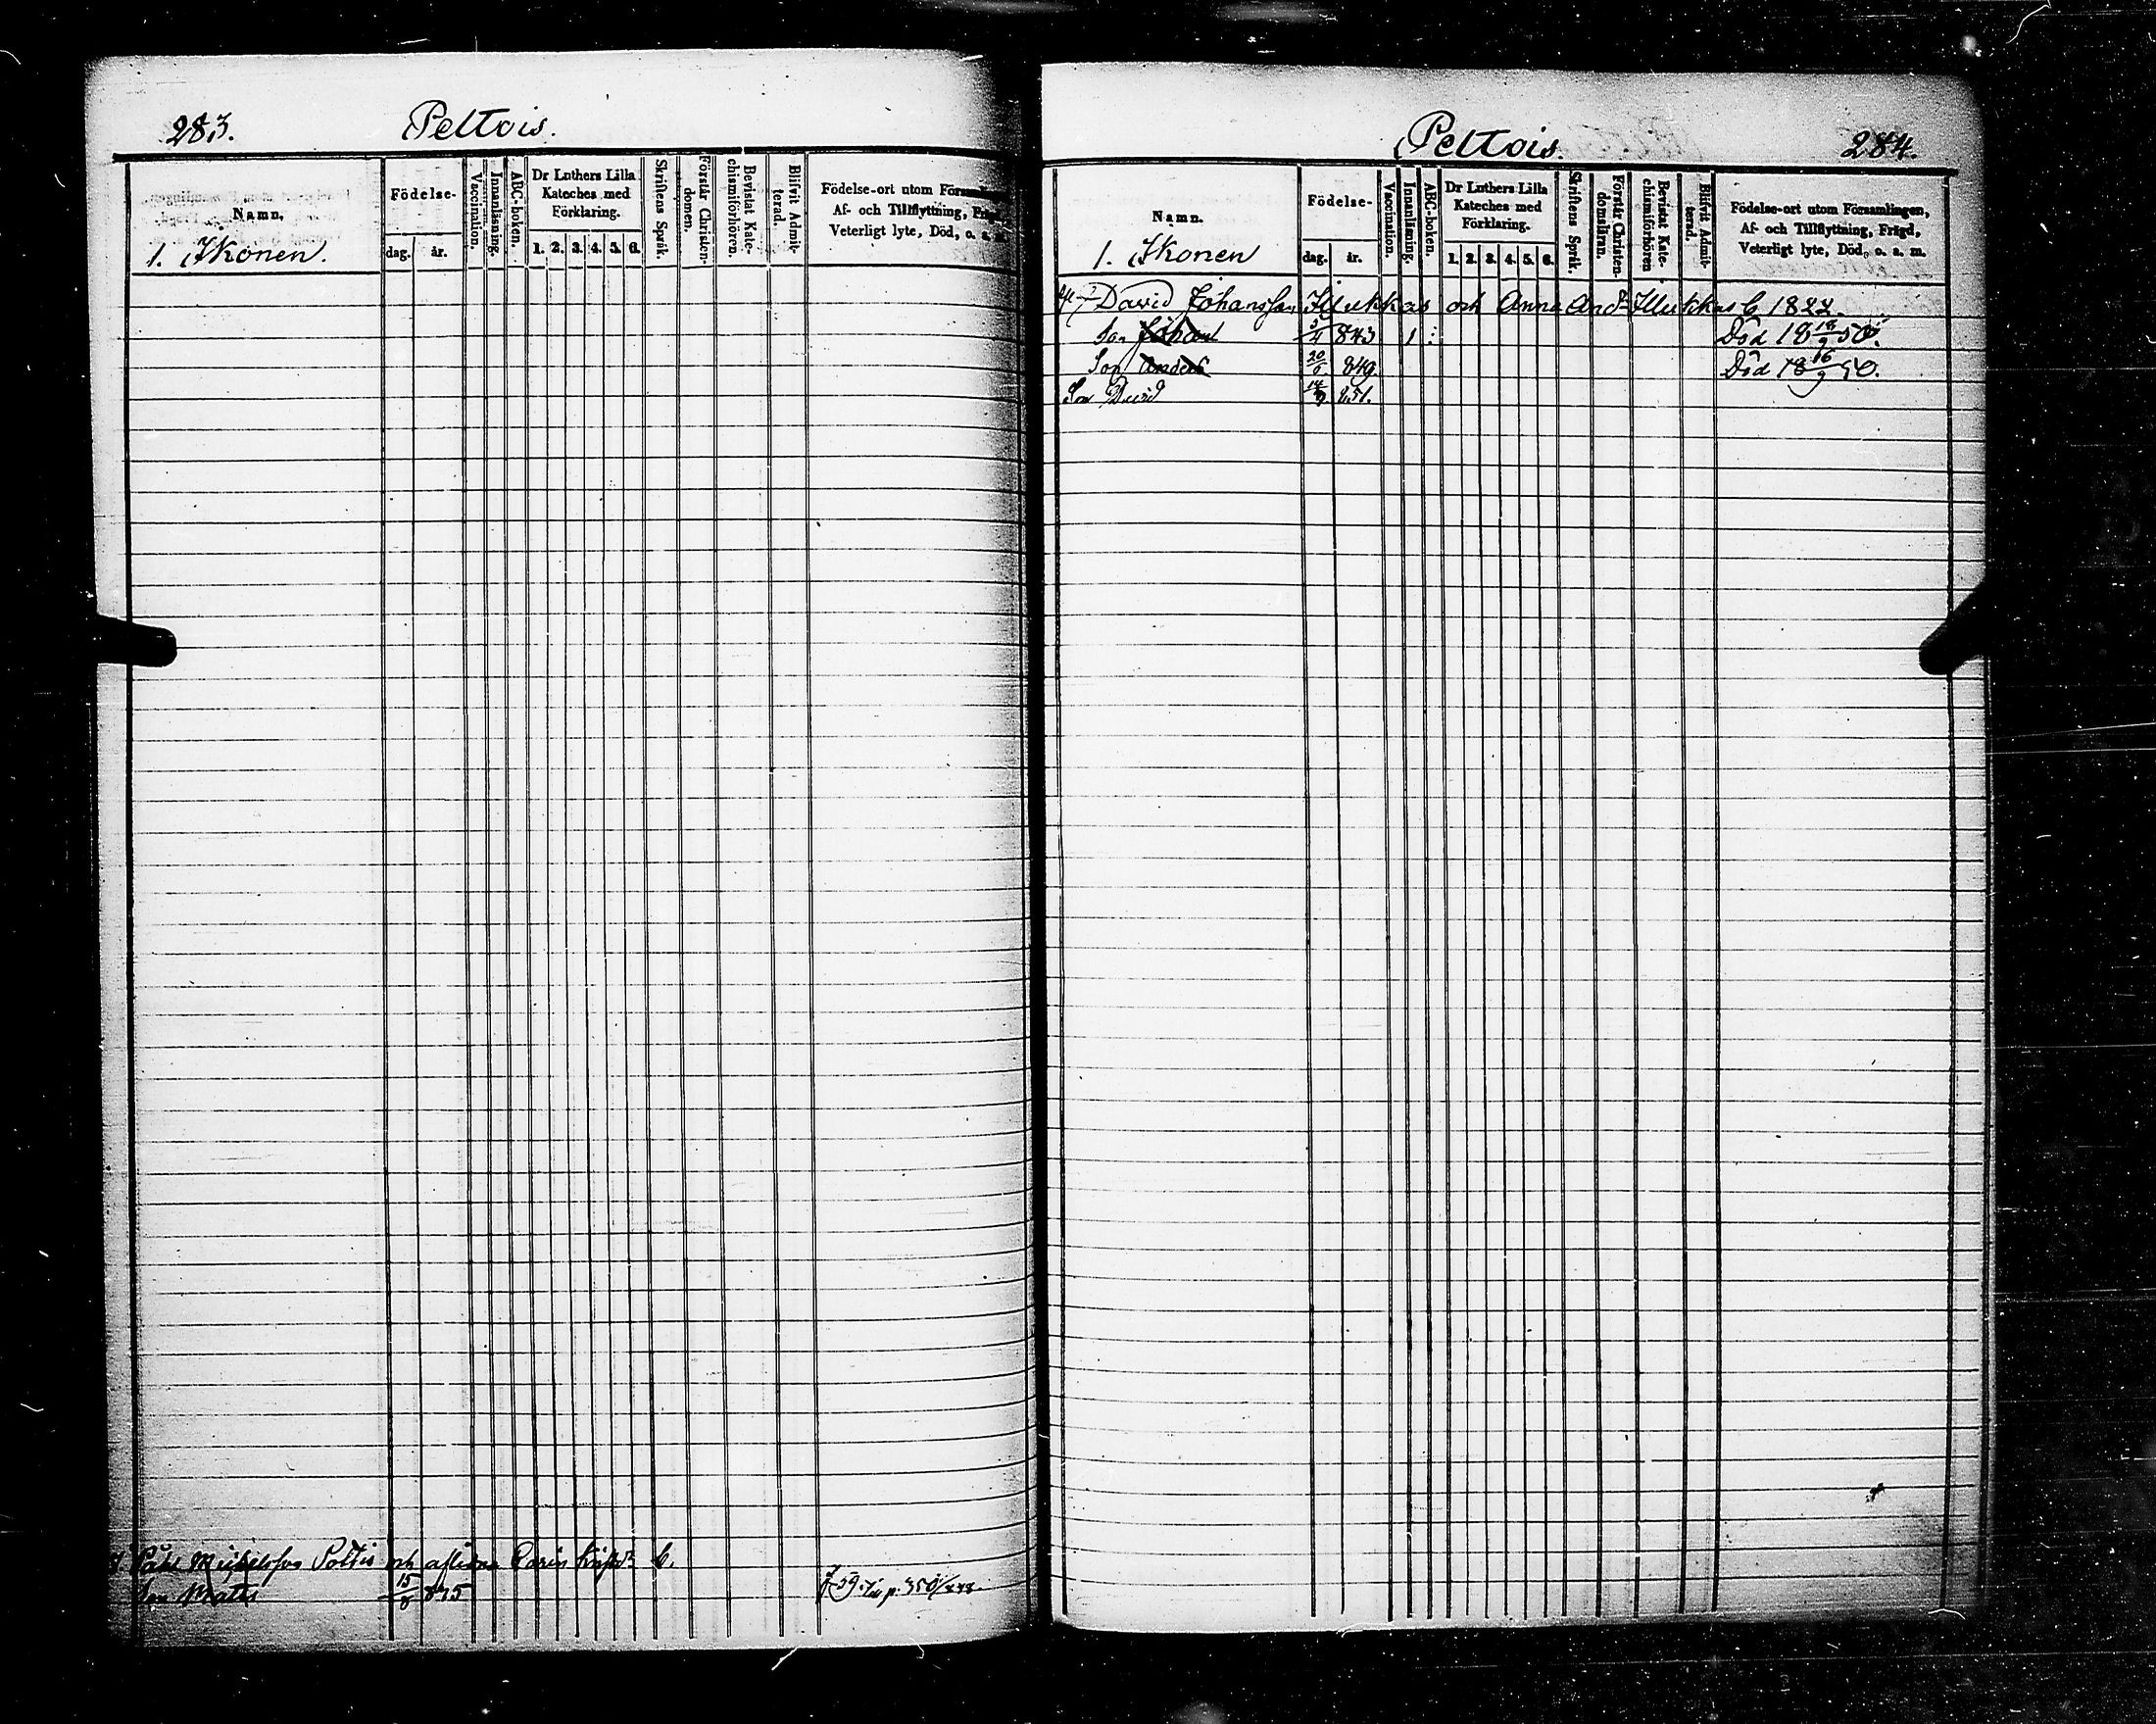 283. Peltois.
Namn.
1. Ikonen.
Födelse-
dag. år.
Vaccination.
Innanläsning.
ABC-boken.
Dr Luthers Lilla
Kateches med
Förklaring.
1. 2. 3. 4. 5. 6.
Skriftens Språk.
Förstår Christen-
domen.
Bevistat Kate-
chismiförhören.
Blifvit Admit-
terad.
Födelse-ort utom
Af- och Tillflyttning, Frägd,
Veterligt lyte, Död, o. a. m.
Michelsson och Carin
Son Mats 15/8 845
Peltois. 284.
Namn.
1. Ikonen
Födelse-
dag. år.
Vaccination.
Innanläsning.
ABC-boken.
Dr Luthers Lilla
Kateches med
Förklaring.
1. 2. 3. 4. 5. 6.
Skriftens Språk.
Förstår Christen-
domsläran.
Bevistat Kate-
chismiförhören
Blifvit Admit-
terad.
Födelse-ort utom Församlingen,
Af- och Tillflyttning, Frägd,
Veterligt lyte, Död, o. a. m.
David Johansson Illukkas och Anna And Illukkas b 1822.
Son Johan 5/4 843 1 Död 18 18/9 50.
Son Anders 20/6 849. Död 18 16/9 50.
Son David 14/9 851.